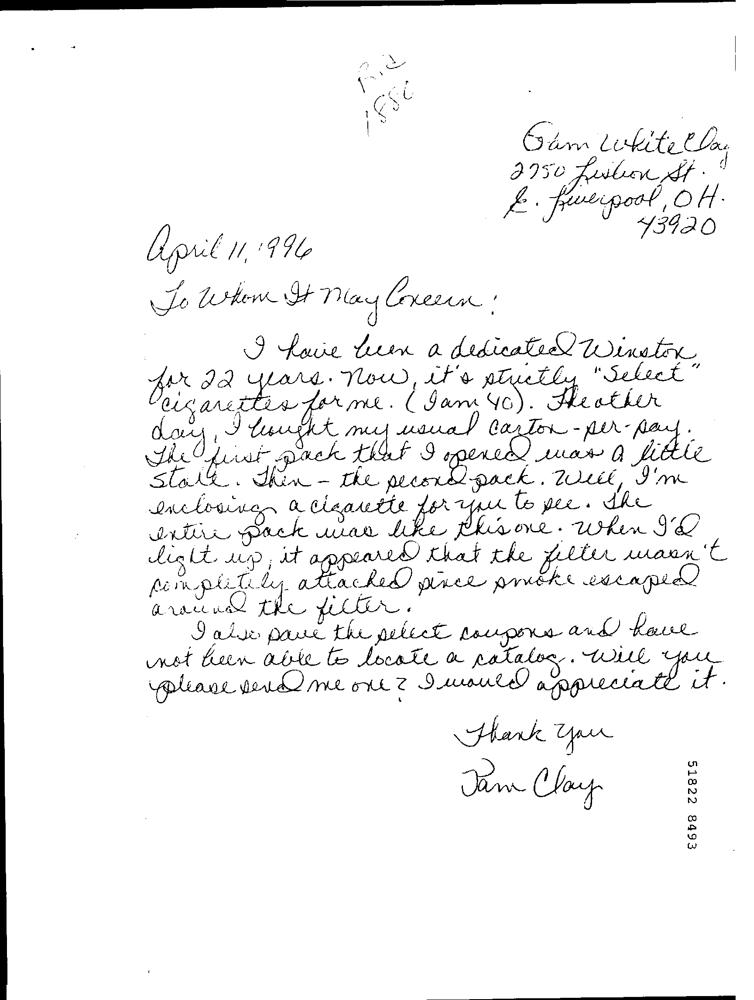 R.d
1886
Pam White Clay
2750 Lisbon St.
E. Liverpool, OH.
43920
April 11, 1996
To Whom It May Concern:
I have been a dedicated Winston
for 22 years. Now, it's strictly "Select"
cigarettes for me. (I am 40). The other
day, I bought my usual carton-per-pay.
The first pack that I opened was a little
stale. Then - the second pack. Well, I'm
enclosing a cigarette for you to see. The
entire pack was like this one. When I'd
light up, it appeared that the filter wasn't
completely attached since smoke escaped
around the filter.
I also save the select coupons and have
not been able to locate a catalog. Will you
please send me one? I would appreciate it.
Thank You
Pam Clay
51822 8493